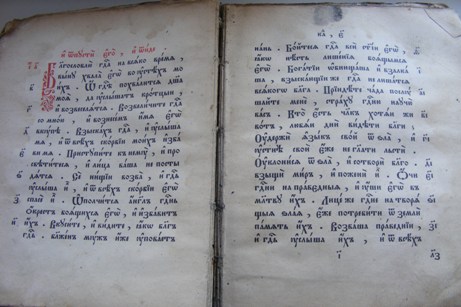 и҆ ѿпꙋстѝ є҆го̀, и҆ ѿи́де
Благословлю̀ гдⷭ҇а на всѧ́ко вре́мѧ,
вы́нꙋ хвала̀ є҆гѡ̀ во ᲂу҆стѣ́хъ мо
и́хъ. Ѡ҆ гдⷭ҇ѣ похва́литсѧ дш҃а
моѧ̀, да ᲂу҆слы́шатъ кро́тцыи
и҆ возвеселѧ́тсѧ. Возвели́чите гдⷭ҇а
со мно́ю, и҆ вознесе́мъ и҆́мѧ є҆гѡ̀
вкꙋ́пѣ. Взыска́хъ гдⷭ҇а, и҆ ᲂу҆слы́ша
мѧ̀, и҆ ѿ всѣ́хъ ско́рбїи мои́хъ и҆зба́
ви мѧ̀. Пристꙋпи́те к немꙋ̀, и҆ про
свѣти́тесѧ, и҆ ли́ца ва́ша не посты
дѧ́тсѧ. Се́й ни́щїи возва̀, и҆ гдⷭ҇ь
ᲂу҆слы́ша и҆̀, и҆ ѿ всѣ́хъ ско́рбїи є҆гѡ̀
спасѐ и҆̀. Ѡ҆полчи́тсѧ а҆́гг҃лъ гдⷭ҇нь
ѡ҆́крестъ боѧ́щихсѧ є҆гѡ̀, и҆ и҆зба́витъ
и҆́хъ. Вкꙋси́те, и҆ ви́дите, ꙗ҆́кѡ бла́гъ
гдⷭ҇ь. бл҃же́нъ мꙋ́жъ и҆́же ᲂу҆пова́етъ
на́нь. Бо́йтесѧ гдⷭ҇а всѝ ст҃і́и є҆гѡ̀,
ꙗ҆́кѡ нѣ́сть лише́нїѧ боѧ́щимсѧ
є҆гѡ̀. Бога́тїи ѡ҆бнища́ша и҆ взалка́
ша, взыска́ющїи же гдⷭ҇а не лиша́тсѧ
всѧ́когѡ бла́га. Прїиди́те ча́да послꙋ́
шайте менѐ, стра́хꙋ гдⷭ҇ню наꙋчꙋ̀
ва́съ. Кто̀ є҆́сть чл҃къ хотѧ́й жи
во́тъ, любѧ́й дни̑ ви́дѣти бла́ги,
Оу҆держѝ ꙗ҆зы́къ сво́й ѿ ѕла̀, и҆ ᲂу҆
стнѣ̀ своѝ є҆́же не гл҃ати льстѝ
Оу҆клони́сѧ ѿ ѕла̀, и҆ сотворѝ бла́го.
взыщѝ ми́ръ, и҆ поженѝ и҆̀. Ѻ҆́чи
гдⷭ҇ни на првⷣныѧ, и҆ ᲂу҆́ши є҆гѡ̀ въ
мл҃твꙋ и҆́хъ. Лице́ же гдⷭ҇не на творѧ́
щыѧ ѕла́ѧ, є҆́же потреби́ти ѿ землѝ
па́мѧть и҆́хъ. Возва́ша првⷣнїи,
и҆ гдⷭ҇ь ᲂу҆слы́ша и҆́хъ, и҆ ѿ всѣ́хъ